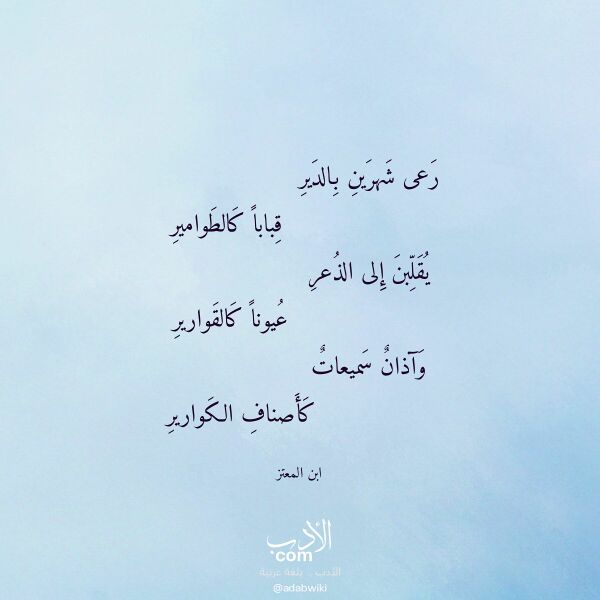 رَعى شَهرَينِ بِالدَيرِ
قِباباً كَالطَواميرِ
يُقَلِّبنَ إِلى الذُعرِ
عُيوناً كَالقَواريرِ
وَآذانٌ سَميعاتٌ
كَأَصنافِ الكَواريرِ
ابن المعتز
الأدب
com
الأدب .. بلغة عربية
@adabwiki